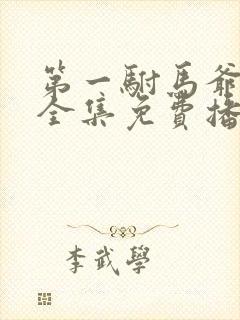 第一駙馬爺
全集免費播
李武學